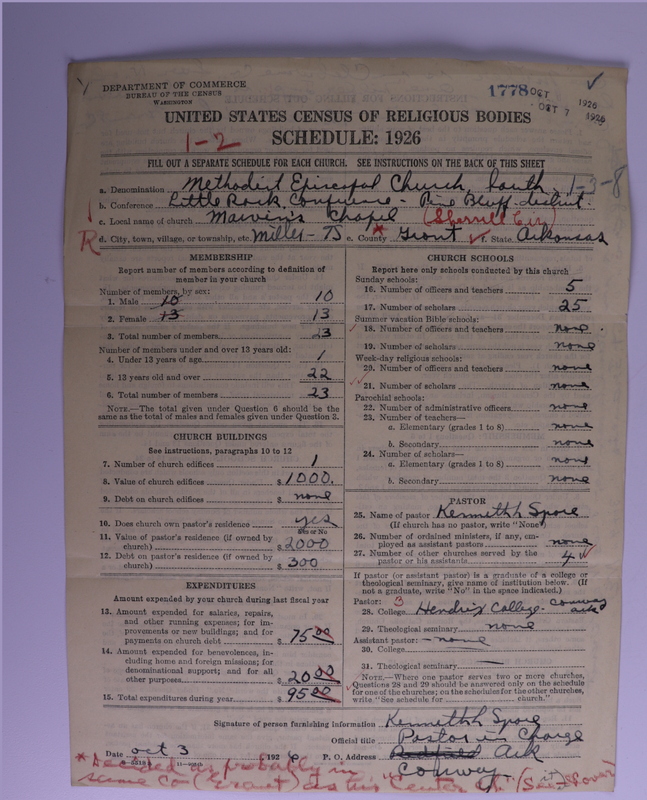 DEPARTMENT OF COMMERCE
BUREAU OF THE CENSUS
WASHINGTON
1778 OCT 1926
OCT 7 1926
UNITED STATES CENSUS OF RELIGIOUS BODIES
1-2
SCHEDULE: 1926
FILL OUT A SEPARATE SCHEDULE FOR EACH CHURCH. SEE INSTRUCTIONS ON THE BACK OF THIS SHEET
a. Denomination Methodist Episcopal Church, South 1-3-8
b. Conference Little Rock Conference - Pine Bluff district.
c. Local name of church Marvin's Chapel (Sherrill Cir)
R d. City, town, village, or township, etc. Miller - TS e. County * Grant f. State Arkansas
MEMBERSHIP
Report number of members according to definition of
member in your church
Number of members, by sex:
1. Male 10 10
2. Female 13 13
3. Total number of members 23
Number of members under and over 13 years old:
4. Under 13 years of age 1
5. 13 years old and over 22
6. Total number of members 23
NOTE.—The total given under Question 6 should be the
same as the total of males and females given under Question 3.
CHURCH BUILDINGS
See instructions, paragraphs 10 to 12
7. Number of church edifices 1
8. Value of church edifices $ 1000.
9. Debt on church edifices $ none
10. Does church own pastor's residence yes
Yes or No
11. Value of pastor's residence (if owned by
church) $ 2000
12. Debt on pastor's residence (if owned by
church) $ 300
EXPENDITURES
Amount expended by your church during last fiscal year
13. Amount expended for salaries, repairs,
and other running expenses; for im-
provements or new buildings; and for
payments on church debt $ 75 00
14. Amount expended for benevolences, in-
cluding home and foreign missions; for
denominational support; and for all
other purposes $ 20 00
15. Total expenditures during year $ 95 00
CHURCH SCHOOLS
Report here only schools conducted by this church
Sunday schools:
16. Number of officers and teachers 5
17. Number of scholars 25
Summer vacation Bible schools:
18. Number of officers and teachers none
19. Number of scholars none
Week-day religious schools:
20. Number of officers and teachers none
21. Number of scholars none
Parochial schools:
22. Number of administrative officers none
23. Number of teachers—
a. Elementary (grades 1 to 8) none
b. Secondary none
24. Number of scholars—
a. Elementary (grades 1 to 8) none
b. Secondary none
PASTOR
25. Name of pastor Kenneth Spore
(If church has no pastor, write "None")
26. Number of ordained ministers, if any, em-
ployed as assistant pastors none
27. Number of other churches served by the
pastor or his assistants 4
If pastor (or assistant pastor) is a graduate of a college or
theological seminary, give name of institution below. (If
not a graduate, write "No" in the space indicated.)
Pastor: 3
28. College Hendrix College - Conway Ark
29. Theological seminary none
Assistant pastor: - none
30. College
31. Theological seminary
NOTE.—Where one pastor serves two or more churches,
Questions 28 and 29 should be answered only on the schedule
for one of the churches; on the schedules for the other churches,
write "See schedule for church."
Signature of person furnishing information Kenneth Spore
Official title Pastor in Charge
Date Oct 3 192 6 P. O. Address Redfield Ark
Conway
* Decided as probably in
same Co (Grant) as this